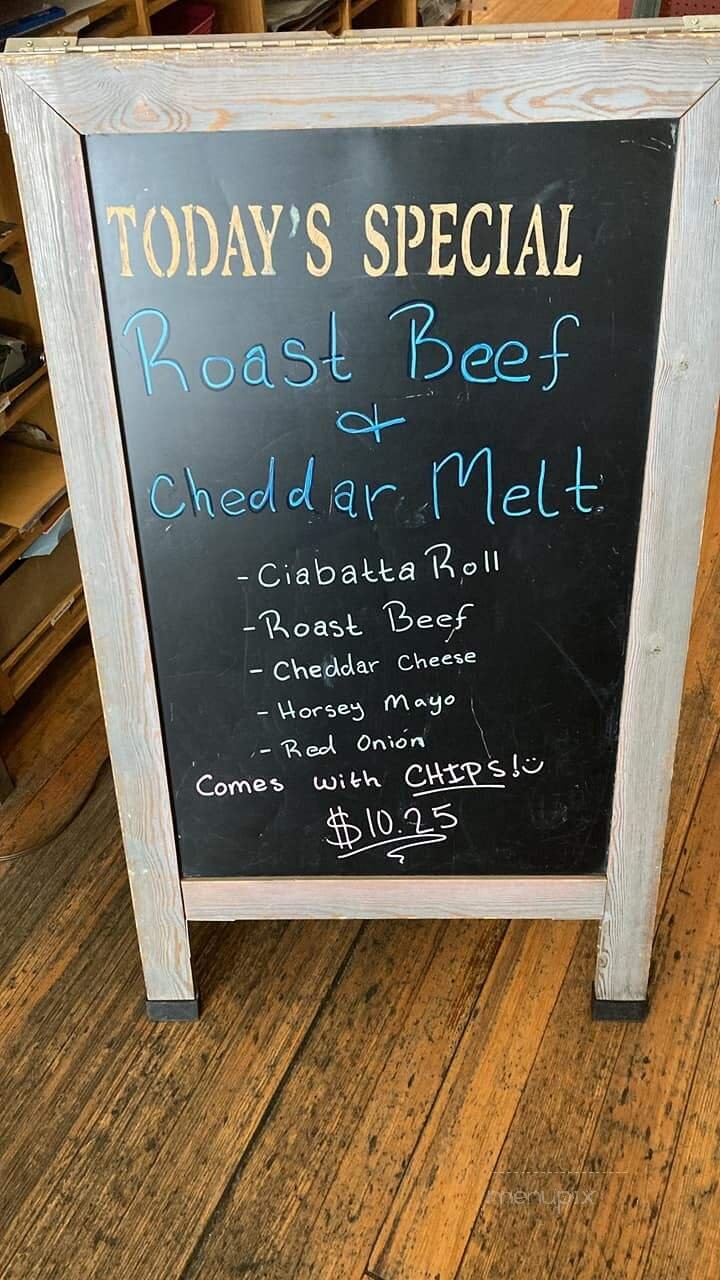 TODAY'S SPECIAL
Roast Beef
&
Cheddar Melt
- Ciabatta Roll
- Roast Beef
- Cheddar Cheese
- Horsey Mayo
- Red Onion
Comes with CHIPS! ☺
$10.25
menupix